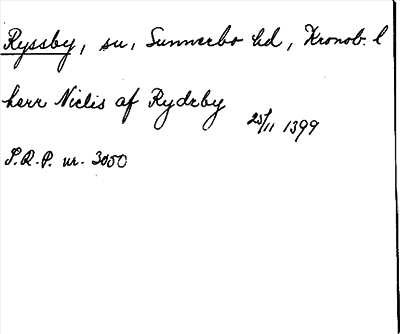 Ryssby, sn, Sunnerbo hd, Kronob. l
herr Niclis af Rydzby
25/11 1399
S.R.P. nr. 3050